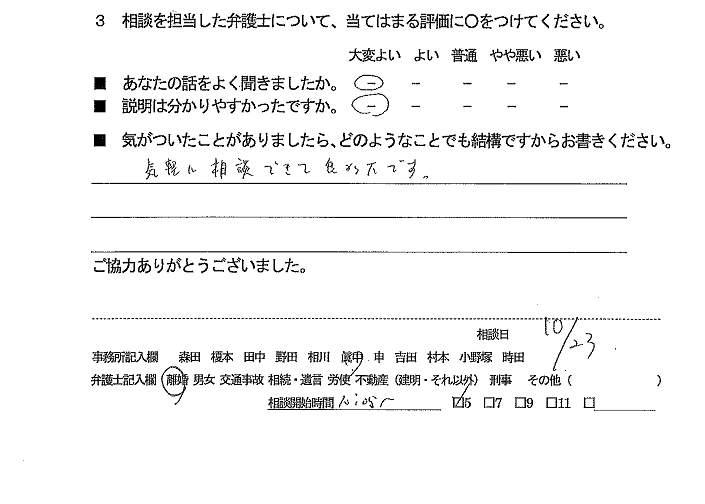 3 相談を担当した弁護士について、当てはまる評価に〇をつけてください。
大変よい よい 普通 やや悪い 悪い
■ あなたの話をよく聞きましたか。 － － － － －
■ 説明は分かりやすかったですか。 － － － － －
■ 気がついたことがありましたら、どのようなことでも結構ですからお書きください。
気軽に相談できて良かったです。
ご協力ありがとうございました。
相談日 10/23
事務所記入欄 森田 榎本 田中 野田 相川 申 吉田 村本 小野塚 時田
弁護士記入欄 離婚 男女 交通事故 相続・遺言 労使 不動産（建明・それ以外） 刑事 その他（ ）
相談開始時間 ☑5 □7 □9 □11 □